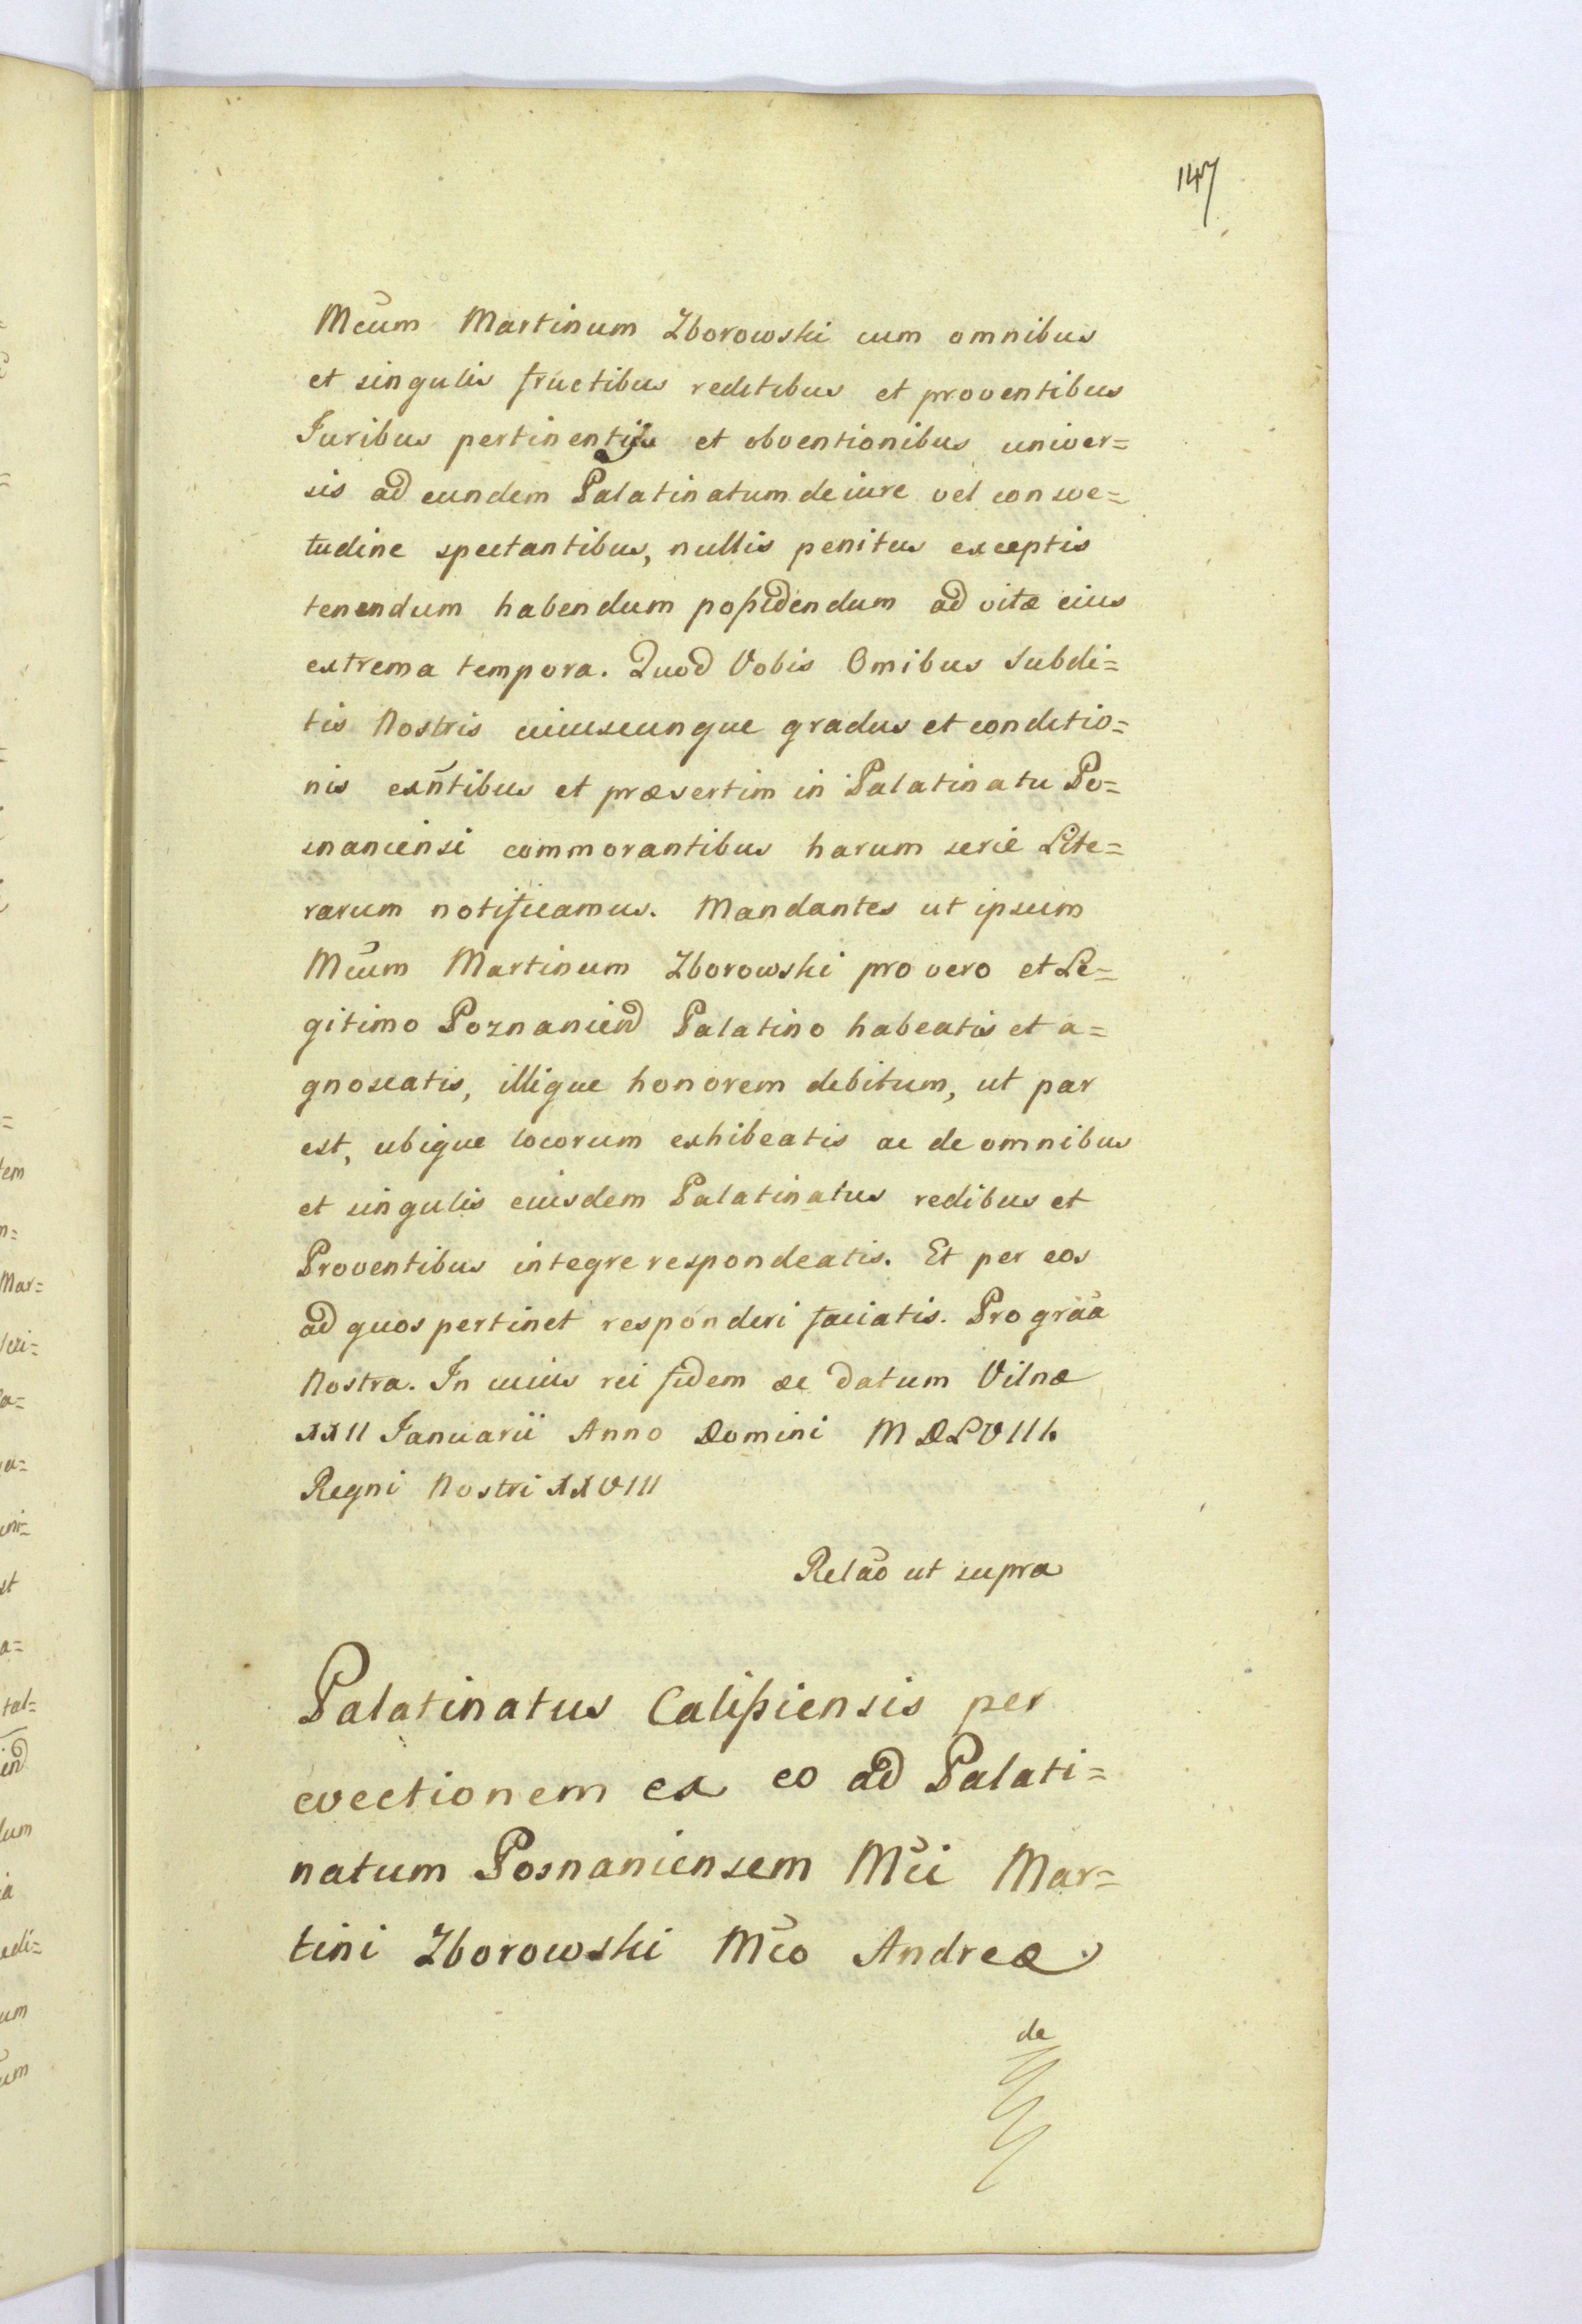 147
Mcūm Martinum Zborowski cum omnibus
et singulis fructibus reditibus et proventibus
Iuribus pertinentijs et obventionibus univer=
sis ad eundem Palatinatum de iure vel conswe=
tudine spectantibus, nullis penitus exceptis
tenendum habendum poßidendum ad vitæ eius
extrema tempora. Quod Vobis Omibus Subdi=
tis Nostris cuiuscunque gradus et conditio=
nis exñtibus et præsertim in Palatinatu Po=
snaniensi commorantibus harum serie Lite=
rarum notificamus. Mandantes ut ipsum
Mcūm Martinum Zborowski pro vero et Le=
gitimo Poznanien Palatino habeatis et a=
gnoscatis, illique honorem debitum, ut par
est, ubique locorum exhibeatis ac de omnibus
et singulis eiusdem Palatinatus redibus et
Proventibus integre respondeatis. Et per eos
ad quos pertinet responderi faciatis. Pro grāa
Nostra. In cuius rei fidem æc datum Vilnæ
XXII Ianuarii Anno Domini MDLVIII.
Regni Nostri XXVIII
Relāo ut supra
Palatinatus Calißiensis per
evectionem ex eo ad Palati=
natum Posnaniensem Mc̄i Mar=
tini Zborowski Mc̄o Andreæ
de